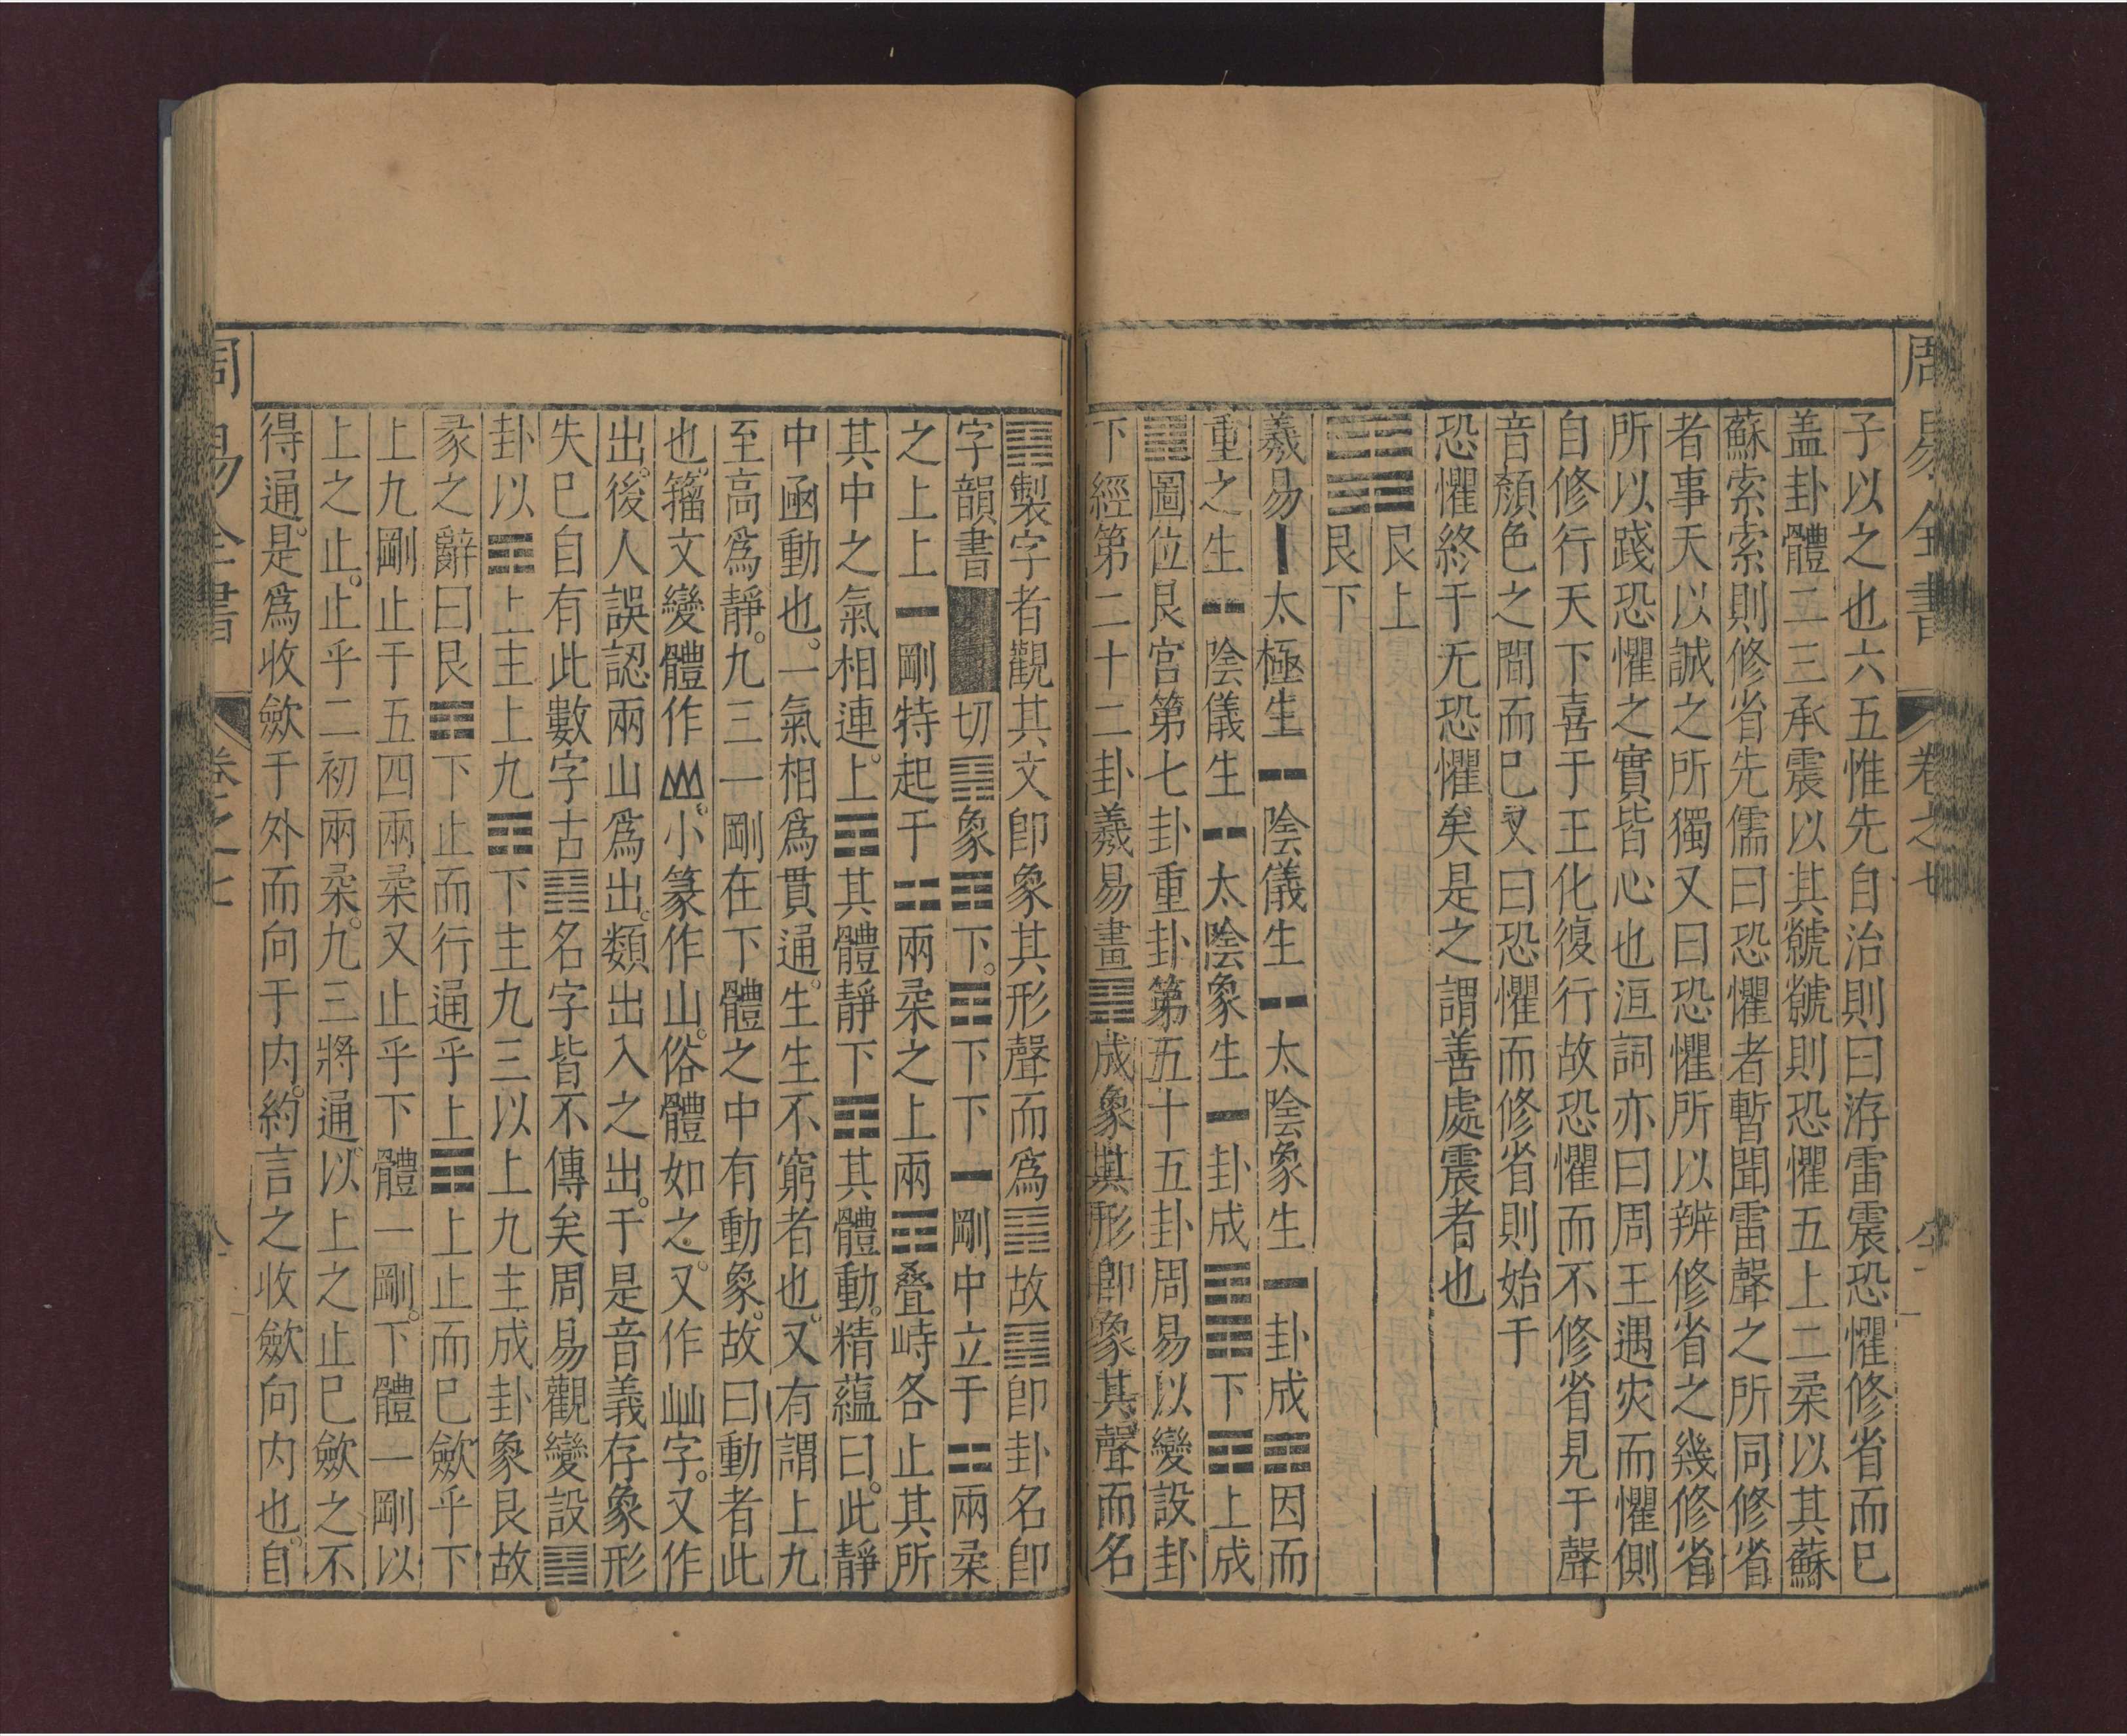 周易全書 卷之七
子以之也六五惟先自治則曰洊雷震恐懼修省而已
盖卦體二三承震以其虩虩則恐懼五上二柔以其蘇
蘇索索則修省先儒曰恐懼者暫聞雷聲之所同修省
者事天以誠之所獨又曰恐懼所以辨修省之幾修省
所以踐恐懼之實皆心也洹詞亦曰周王遇灾而懼側
自修行天下喜于王化復行故恐懼而不修省見于聲
音顏色之間而已又曰恐懼而修省則始于
恐懼終于无恐懼矣是之謂善處震者也
䷳ 艮上
䷳ 艮下
羲易⚊太極生⚋陰儀生⚋太陰象生⚊卦成☶因而
重之生⚋陰儀生⚋太陰象生⚊卦成䷳☶下☶上成
䷳圖位艮宮第七卦重卦第五十五卦周易以變設卦
下經第二十二卦羲易畫䷳成象其形卽象其聲而名
䷳製字者觀其文卽象其形聲而爲䷳故䷳卽卦名卽
字韻書 切䷳象☶下。☶下下⚊剛中立于⚏兩柔
之上上⚊剛特起于⚏兩柔之上兩☶叠峙各止其所
其中之氣相連。上☶其體靜下☶其體動。精蘊曰。此靜
中函動也。一氣相爲貫通。生生不窮者也。又有謂上九
至高爲靜。九三一剛在下體之中有動象。故曰動者此
也。籀文變體作。小篆作山。俗體如之。又作屾字。又作
出。後人誤認兩山爲出。類出入之出。于是音義存象形
失巳自有此數字古䷳名字皆不傳矣周易觀變設䷳
卦以☶上主上九☶下主九三以上九主成卦象艮故
彖之辭曰艮☶下止而行通乎上☶上止而巳歛乎下
上九剛止于五四兩柔又止乎下體一剛。下體一剛以
上之止。止乎二初兩柔。九三將通。以上之止巳歛之不
得通。是爲收歛于外而向于內。約言之收歛向内也。自
周易全書 卷之七